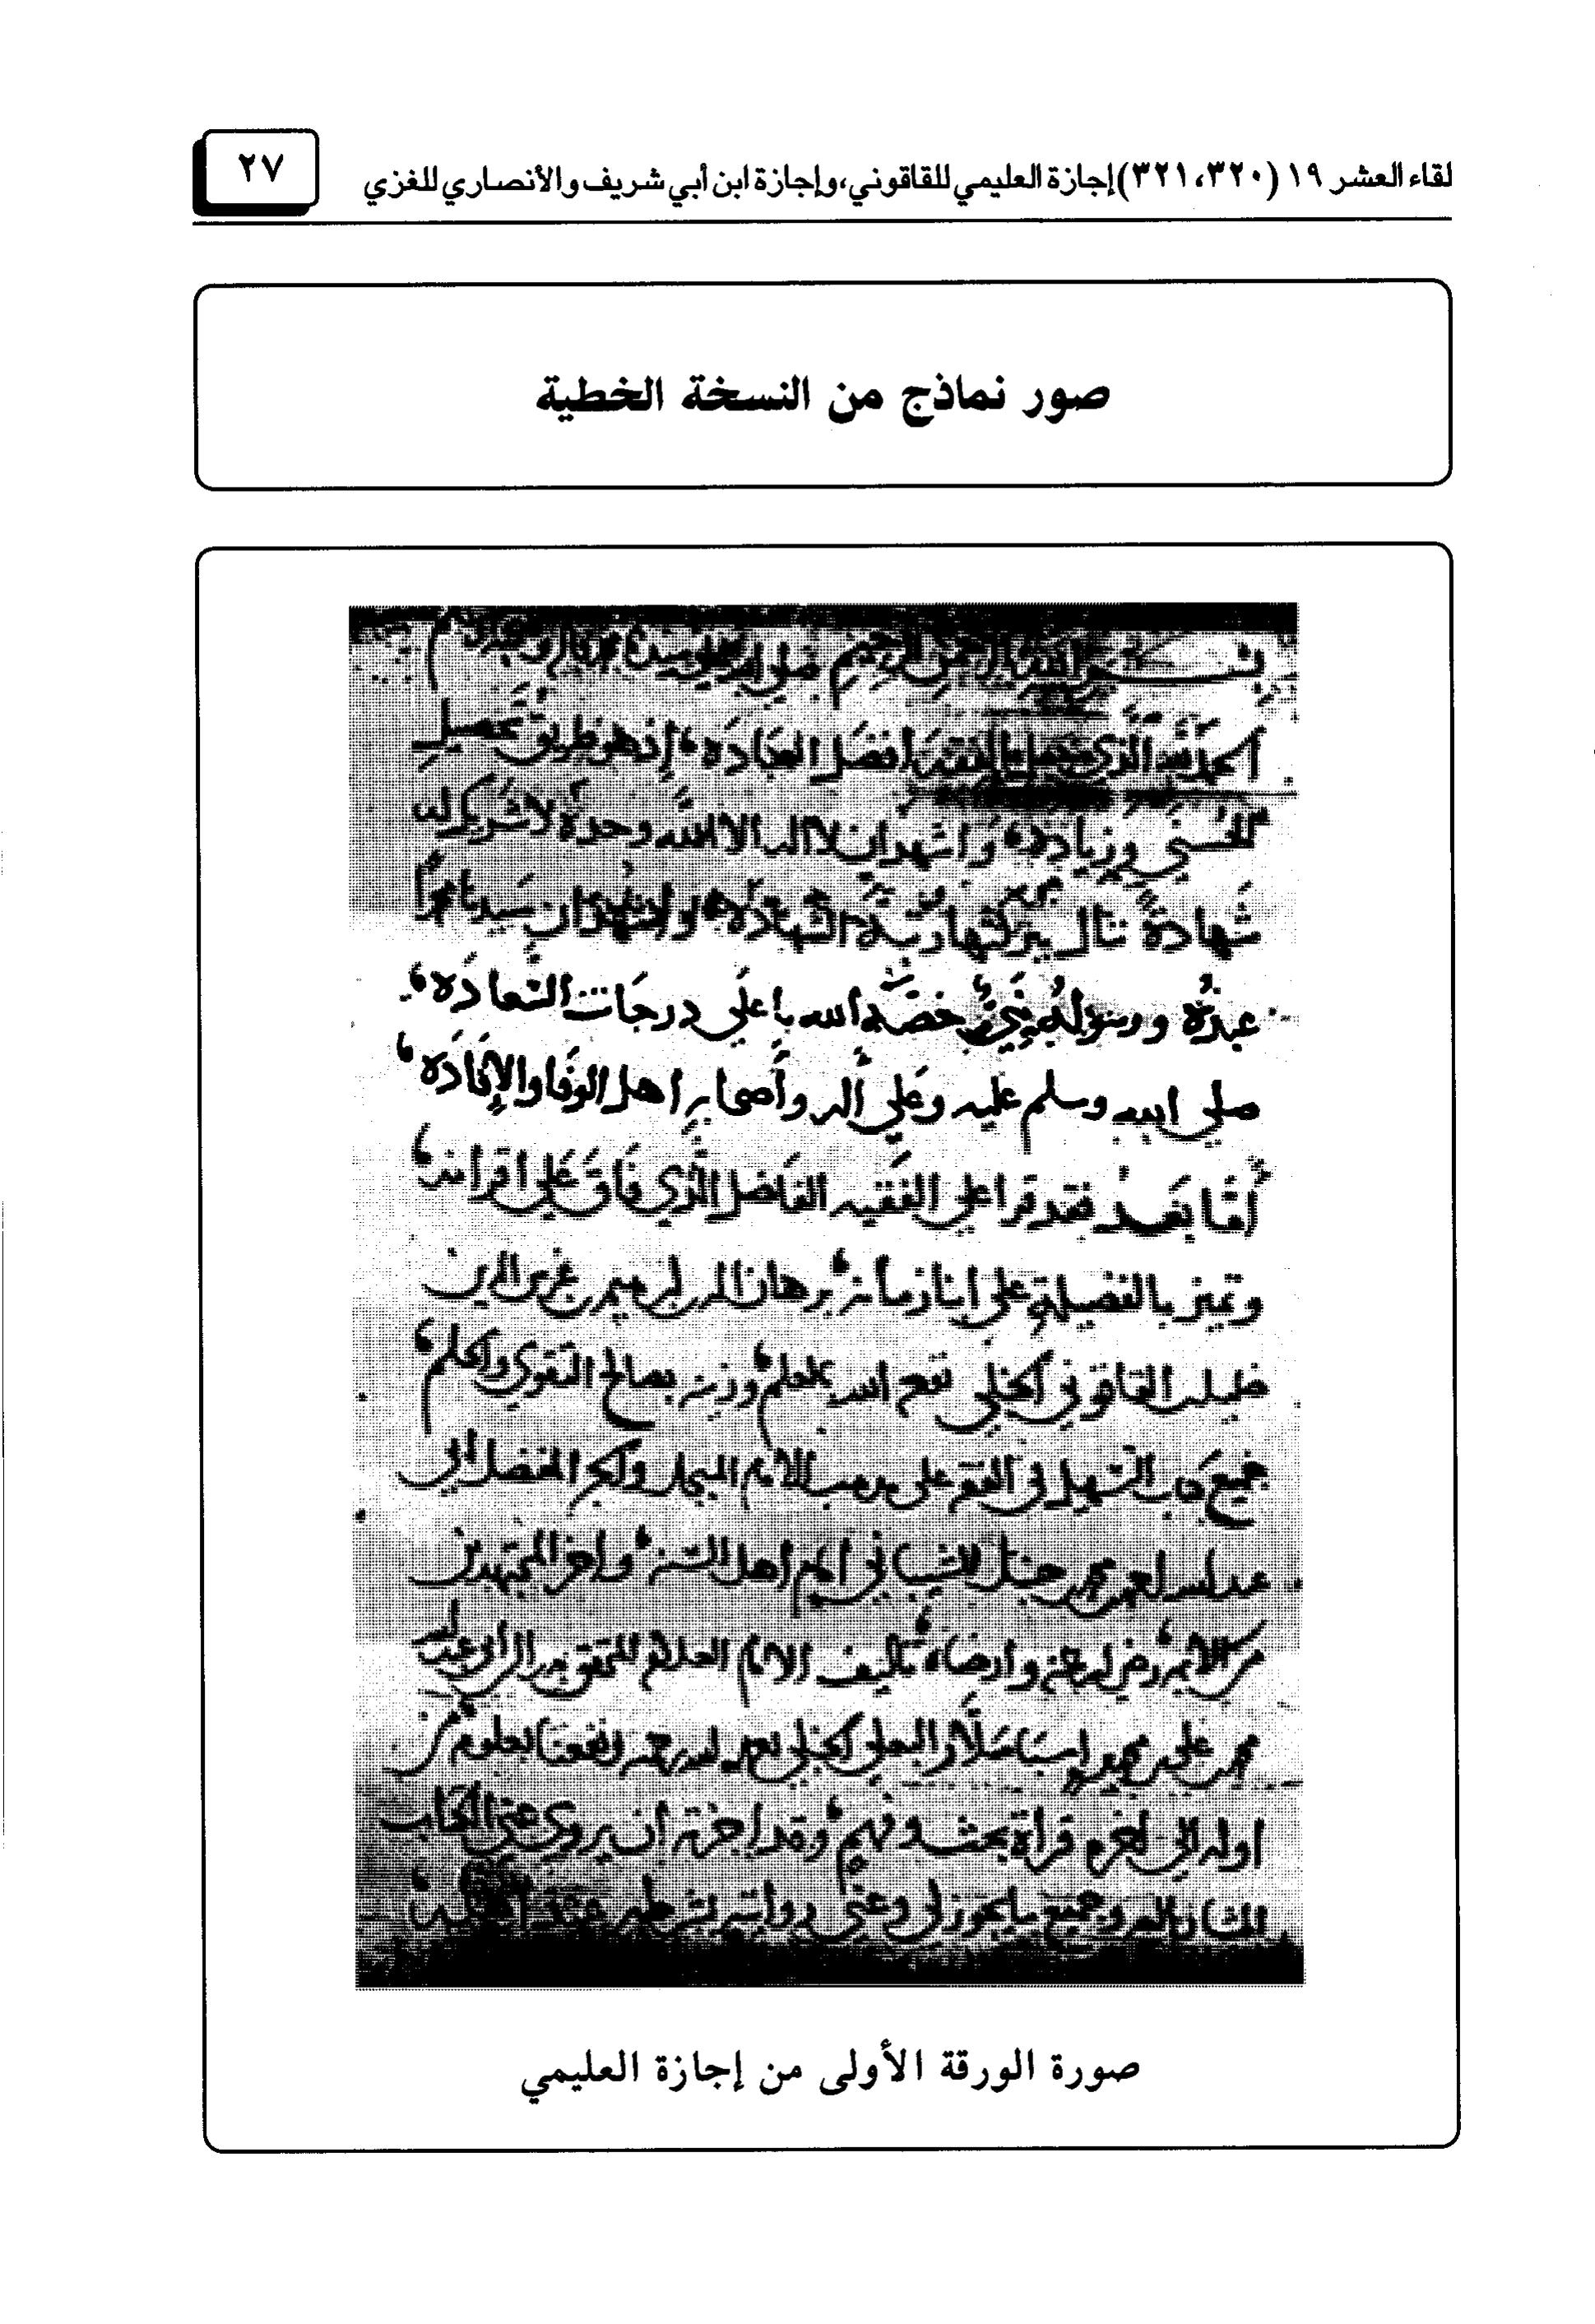 لقاء العشر ١٩ (٣٢٠،٣٢١) إجازة العليمي للقاقوني، وإجازة ابن أبي شريف والأنصاري للغزي
٢٧
صور نماذج من النسخة الخطية
بسم الله الرحمن الرحيم
الحمد لله الذي جعل الفقه افضل العبادة، إذ هو طريق تحصيل
الحسنى وزيادة، وأشهد ان لا اله الا الله وحده لا شريك له
شهادة ننال ببركتها رتبة الشهادة، وأشهد ان سيدنا محمداً
عبده ورسوله نبيٌ خصّه الله باعلى درجات السّعادَه،
صلى الله وسلم عليه وعلى آله وأصحابه اهل الوفا والإفادَه،
أمّا بعد فقد قرا علي الفقيه الفاضل الذي فاق على اقرانه،
وتميز بالفضيلة على ابنا زمانه، برهان الدين ابرهيم بن غرس الدين
خليل القاقوني الحنبلي نفعه الله بالعلم، وزينه بصالح التقوى والحلم،
جميع كتاب التسهيل في الفقه على مذهب الامام المبجل والحبر المفضل ابي
عبد الله احمد بن محمد بن حنبل الشيباني امام اهل السنه، واعز المجتهدين
من الائمه، رضي الله عنه وارضاه، تاليف الامام العلامه المحقق بدر الدين ابو عبد الله
محمد بن علي بن محمد بن اسباسلار البعلي الحنبلي تغمده الله برحمته ونفعنا بعلومه من
اوله الى اخره قراة بحث وفهم، وقد اجزته ان يروي عني الكتاب
المشار اليه وجميع ما يجوز لي وعني روايته بشرطه عند اهله
صورة الورقة الأولى من إجازة العليمي